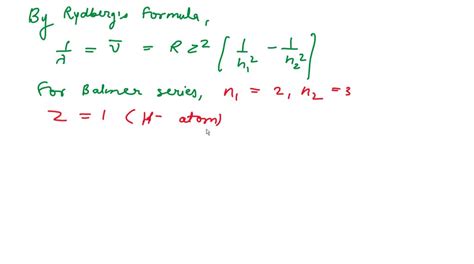 By Rydberg's Formula,
1/λ = ν̅ = R z² [ 1/n₁² - 1/n₂² ]
For Balmer series, n₁ = 2, n₂ = 3
Z = 1 (H- atom)